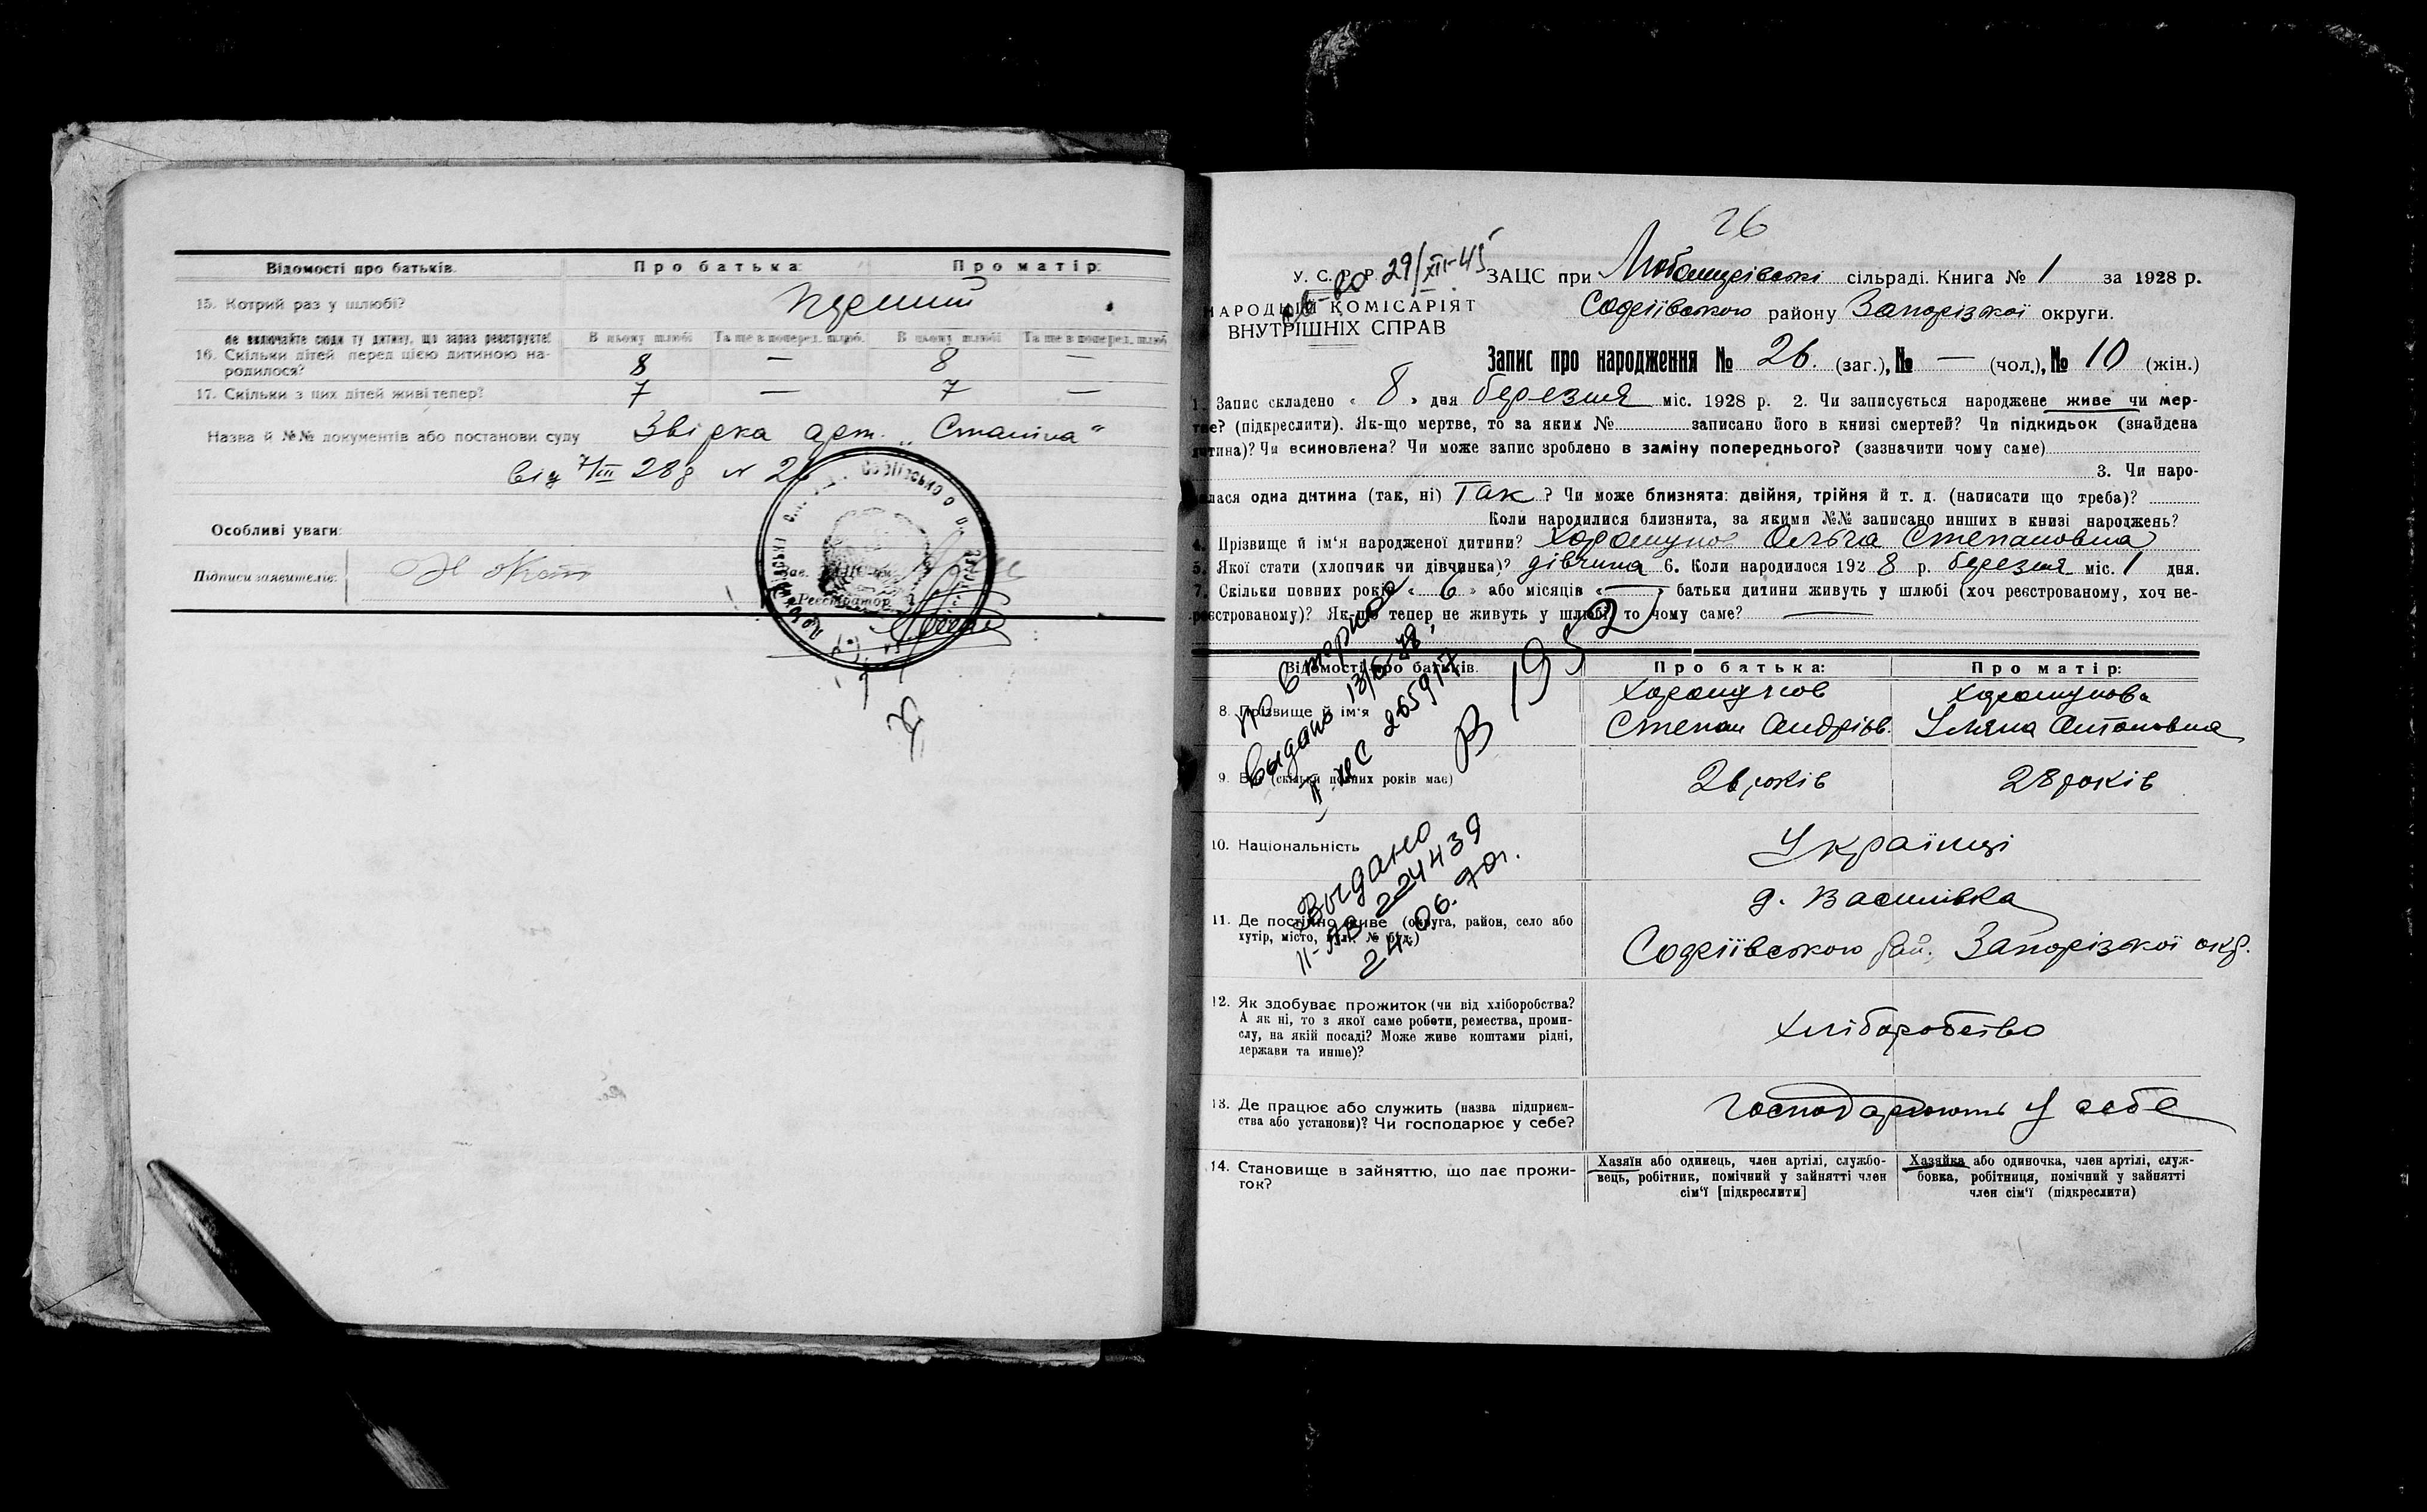 Відомості про батьків.
Про батька:
Про матір:
15. Котрий раз у шлюбі?
перший
не включайте сюди ту дитину, що зараз реєструєте!
В цьому шлюбі
Та ще в поперед. шлюб.
В цьому шлюбі
Та ще в поперед. шлюб
16. Скільки дітей перед цією дитиною на-
родилося?
8 — 8 —
17. Скільки з цих дітей живі тепер?
7 — 7 —
Назва й №№ документів або постанови суду
арт. „Сталіна“
від 7/III 28 р N 26
Особливі уваги:
Підписи заявителів:
Зав. ЗАЦС-ом
Реєстратор
26
У. С. Р. Р.
29/XII-45
НАРОДНІЙ КОМІСАРІЯТ
ВНУТРІШНІХ СПРАВ
ЗАЦС при сільраді. Книга № 1 за 1928 р.
Софіївського району Запорізької округи.
Запис про народження № 26. (заг.), № — (чол.), № 10 (жін.)
1. Запис складено « 8 » дня березня міс. 1928 р. 2. Чи записується народжене живе чи мер-
тве? (підкреслити). Як-що мертве, то за яким № записано його в книзі смертей? Чи підкидьок (знайдена
дитина)? Чи всиновлена? Чи може запис зроблено в заміну попереднього? (зазначити чому саме)
3. Чи наро-
дилася одна дитина (так, ні) Так? Чи може близнята: двійня, трійня й т. д. (написати що треба)?
Коли народилися близнята, за якими №№ записано инших в книзі народжень?
4. Прізвище й ім'я народженої дитини? Ольга Степановна
5. Якої стати (хлопчик чи дівчинка)? дівчина 6. Коли народилося 192 8 р. березня міс. 1 дня.
7. Скільки повних років « 6 » або місяців « — » батьки дитини живуть у шлюбі (хоч реєстрованому, хоч не-
реєстрованому)? Як-що тепер не живуть у шлюбі, то чому саме? —
Відомості про батьків.
Про батька:
Про матір:
8. Прізвище й ім'я
Степан Андріїв.
Уляна Антоновна
9. Вік (скільки повних років має)
років
28 років
10. Національність
Українці
11. Де постійно живе (округа, район, село або
хутір, місто, вул. № буд.)
д. Василівка
Софіївського рай. Запорізкої окр.
12. Як здобуває прожиток (чи від хліборобства?
А як ні, то з якої саме роботи, ремества, проми-
слу, на якій посаді? Може живе коштами рідні,
держави та инше)?
хліборобство
13. Де працює або служить (назва підприєм-
ства або установи)? Чи господарює у себе?
господарюють у себе
14. Становище в зайняттю, що дає прожи-
ток?
Хазяїн або одинець, член артілі, службо-
вець, робітник, помічний у зайнятті член
сім'ї [підкреслити]
Хазяйка або одиночка, член артілі, служ-
бовка, робітниця, помічний у зайнятті
член сім'ї (підкреслити)
Выдано
265917
В 1952
Выдано
II-ЯВ 224439
24.06.70г.